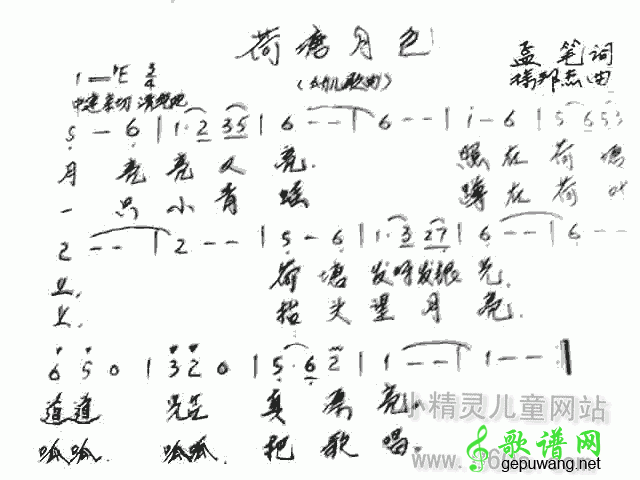 荷塘月色
(幼儿歌曲)
孟笔词
杨邦杰曲
1=♭E 3/4
中速 亲切 清纯地
5 - 6 | 1·2 35 | 6 - - | 6 - - | i - 6 | 5 653
月 亮 亮 又 亮. 照 在 荷 塘
一 只 小 青 蛙 蹲 在 荷 叶
2 - - | 2 - - | 5 - 6 | 1·3 27 | 6 - - | 6 - -
上. 荷 塘 发呀发银光.
上. 抬 头 望 月 亮.
6 5 0 | 3 2 0 | 5·6 2 | 1 - - | 1 - - :||
道道 光芒 真 漂 亮.
呱呱. 呱呱. 把 歌 唱.
小精灵儿童网站
歌谱网
gepuwang.net